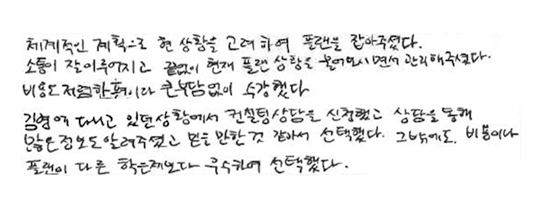 체계적인 계획으로 현 상황을 고려하여 플랜을 잡아주셨다.
소통이 잘이루어지고 끝없이 현재 플랜 상황을 물어보시면서 관리해주셨다.
비용도 저렴한편이라 큰부담없이 수강했다
다니고 있던상황에서 컨설팅상담을 신청했고 상담을 통해
많은정보도알려주셨고 믿을 만한 것 같아서 선택했다. 그밖에도, 비용이나
플랜이 다른 학은제보다 우수하여 선택했다.